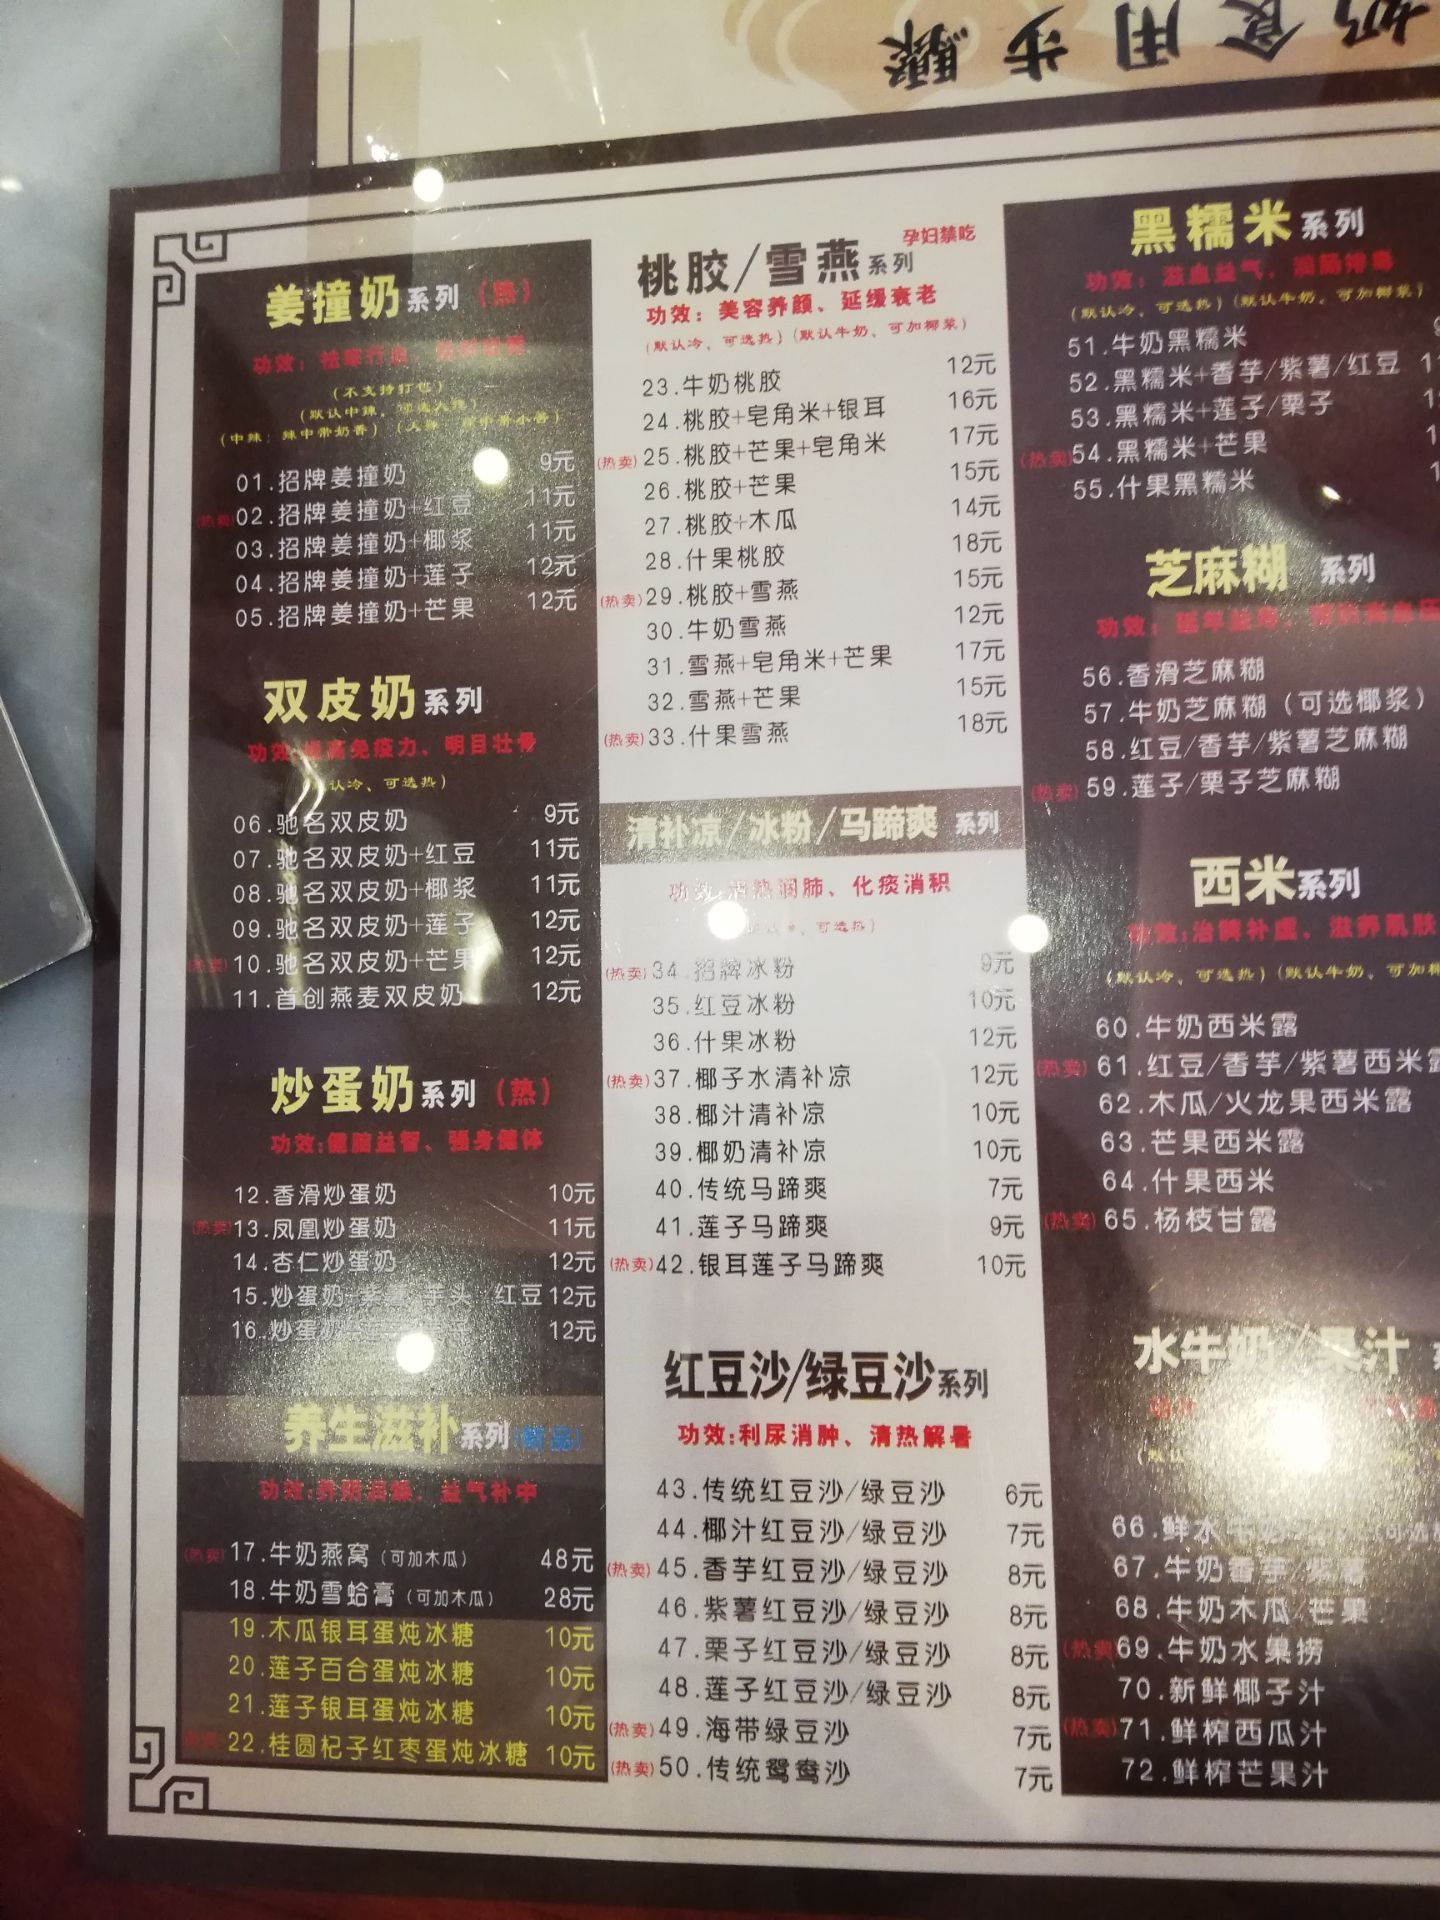 奶食用步骤
姜撞奶系列(热)
功效:祛寒行血、
(不支持打包)
(默认中辣,可选大辣)
(中辣:辣中带奶香)
01.招牌姜撞奶 9元
(热卖)02.招牌姜撞奶+红豆 11元
03.招牌姜撞奶+椰浆 11元
04.招牌姜撞奶+莲子 12元
05.招牌姜撞奶+芒果 12元
双皮奶系列
功效:提高免疫力、明目壮骨
(默认冷、可选热)
06.驰名双皮奶 9元
07.驰名双皮奶+红豆 11元
08.驰名双皮奶+椰浆 11元
09.驰名双皮奶+莲子 12元
(热卖)10.驰名双皮奶+芒果 12元
11.首创燕麦双皮奶 12元
炒蛋奶系列(热)
功效:健脑益智、强身健体
12.香滑炒蛋奶 10元
(热卖)13.凤凰炒蛋奶 11元
14.杏仁炒蛋奶 12元
15.炒蛋奶+紫薯/芋头/红豆12元
16.炒蛋奶 12元
养生滋补系列(新品)
功效:养阴润燥、益气补中
(热卖)17.牛奶燕窝(可加木瓜) 48元
18.牛奶雪蛤膏(可加木瓜) 28元
19.木瓜银耳蛋炖冰糖 10元
20.莲子百合蛋炖冰糖 10元
21.莲子银耳蛋炖冰糖 10元
(热卖)22.桂圆杞子红枣蛋炖冰糖 10元
桃胶/雪燕系列 孕妇禁吃
功效:美容养颜、延缓衰老
(默认冷、可选热)(默认牛奶、可加椰浆)
23.牛奶桃胶 12元
24.桃胶+皂角米+银耳 16元
(热卖)25.桃胶+芒果+皂角米 17元
26.桃胶+芒果 15元
27.桃胶+木瓜 14元
28.什果桃胶 18元
(热卖)29.桃胶+雪燕 15元
30.牛奶雪燕 12元
31.雪燕+皂角米+芒果 17元
32.雪燕+芒果 15元
(热卖)33.什果雪燕 18元
清补凉/冰粉/马蹄爽 系列
功效:清热润肺、化痰消积
(默认冷、可选热)
(热卖)34.招牌冰粉 9元
35.红豆冰粉 10元
36.什果冰粉 12元
(热卖)37.椰子水清补凉 12元
38.椰汁清补凉 10元
39.椰奶清补凉 10元
40.传统马蹄爽 7元
41.莲子马蹄爽 9元
(热卖)42.银耳莲子马蹄爽 10元
红豆沙/绿豆沙系列
功效:利尿消肿、清热解暑
43.传统红豆沙/绿豆沙 6元
44.椰汁红豆沙/绿豆沙 7元
(热卖)45.香芋红豆沙/绿豆沙 8元
46.紫薯红豆沙/绿豆沙 8元
47.栗子红豆沙/绿豆沙 8元
48.莲子红豆沙/绿豆沙 8元
(热卖)49.海带绿豆沙 7元
(热卖)50.传统鸳鸯沙 7元
黑糯米系列
功效:滋血益气、润肠排毒
(默认冷、可选热)(默认牛奶、可加椰浆)
51.牛奶黑糯米
52.黑糯米+香芋/紫薯/红豆
53.黑糯米+莲子/栗子
(热卖)54.黑糯米+芒果
55.什果黑糯米
芝麻糊 系列
功效:延年益寿、预防高血压
56.香滑芝麻糊
57.牛奶芝麻糊(可选椰浆)
58.红豆/香芋/紫薯芝麻糊
(热卖)59.莲子/栗子芝麻糊
西米系列
功效:治脾补虚、滋养肌肤
(默认冷、可选热)(默认牛奶、可加椰
60.牛奶西米露
(热卖)61.红豆/香芋/紫薯西米露
62.木瓜/火龙果西米露
63.芒果西米露
64.什果西米
(热卖)65.杨枝甘露
水牛奶/果汁
(默认
66.鲜水牛奶 可选
67.牛奶香芋/紫薯
68.牛奶木瓜/芒果
(热卖)69.牛奶水果捞
70.新鲜椰子汁
(热卖)71.鲜榨西瓜汁
72.鲜榨芒果汁